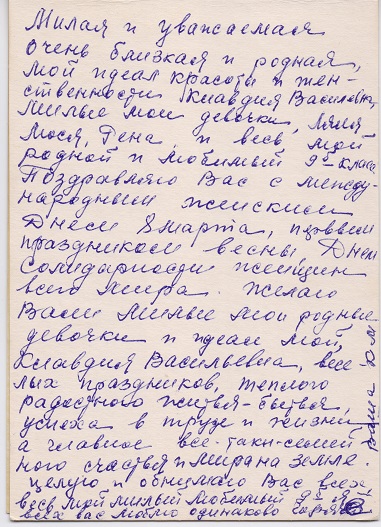 Милая и уважаемая
очень близкая и родная,
мой идеал красоты и жен-
ственности Клавдия Васильевна,
Милые мои девочки, Ляля
Мося, Гена и весь мой
родной и любимый 9й класс
Поздравляю Вас с между-
народным женским
Днем 8 марта, первым
праздником весны, Днем
солидарности женщин
всего мира. Желаю
Вам милые мои родные
девочки и идеал мой,
Клавдия Васильевна, весе-
лых праздников, теплого
радостного житья-бытья,
успеха в труде и жизни
а главное все-таки-семей-
ного счастья и мира на земле.
Целую и обнимаю Вас всех
весь мой милый любимый 9й
всех вас люблю одинаково
Ваша Ю.М.